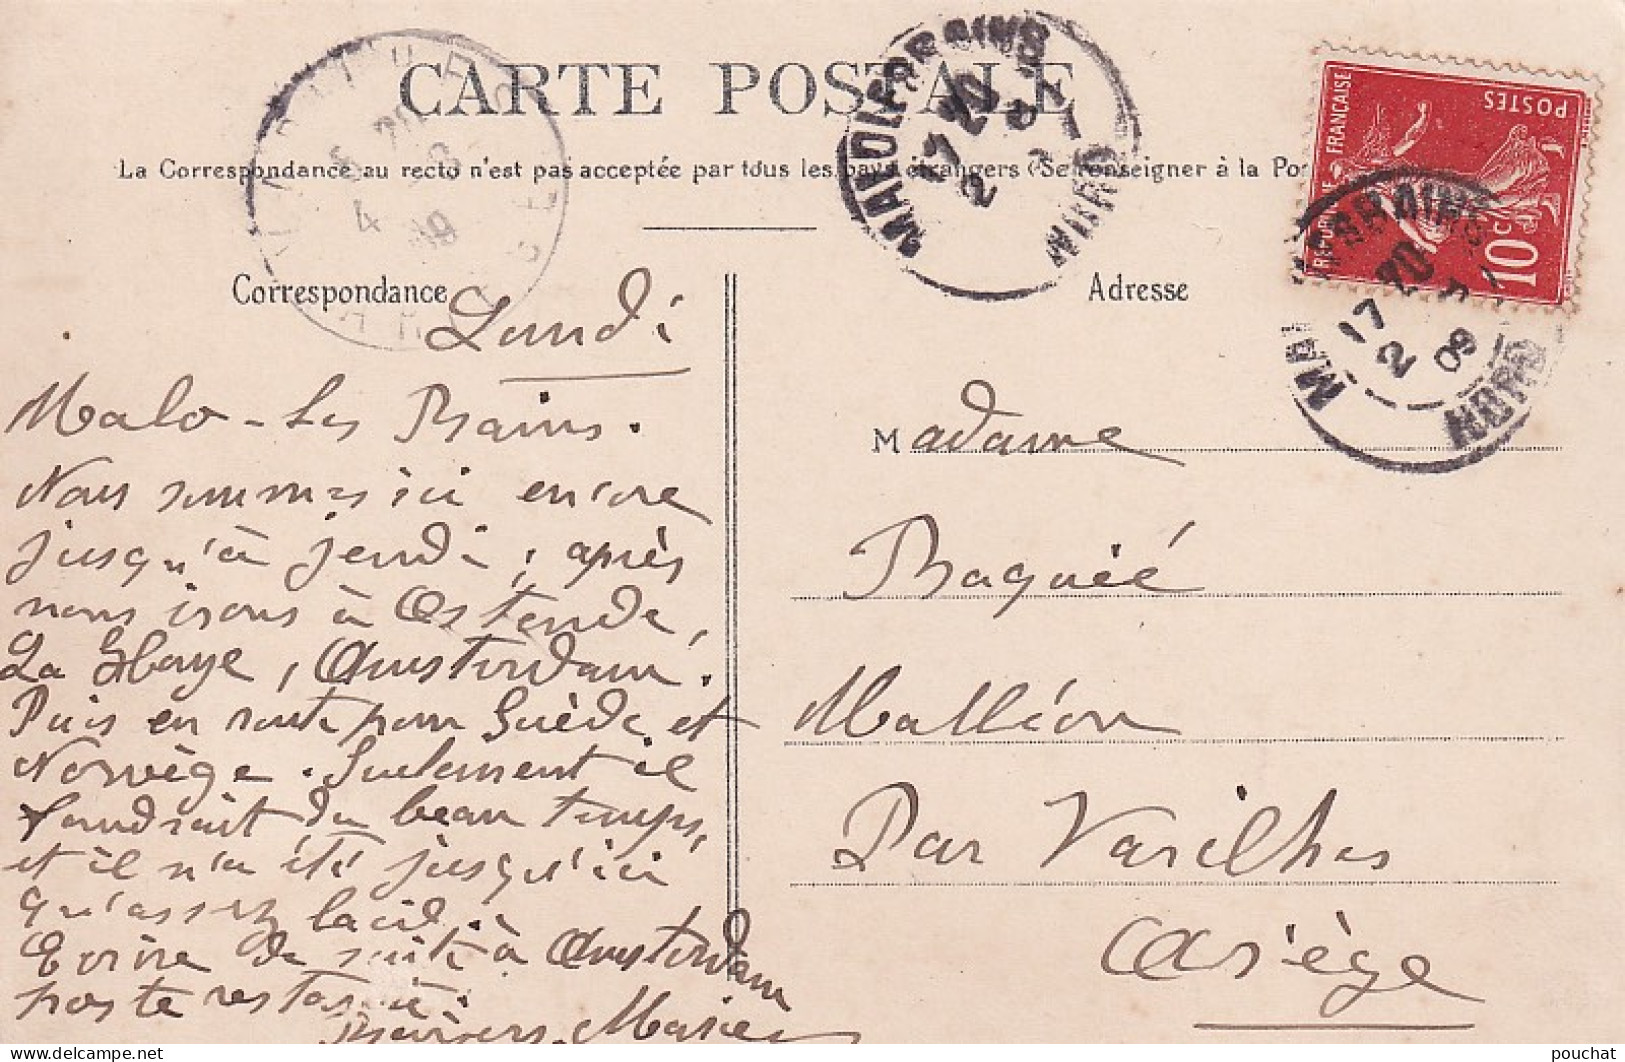 CARTE POSTALE
La Correspondance au recto n'est pas acceptée par tous les pays étrangers (Se renseigner à la Po
MALO LES BAINS
17 20
2
NORD
REPUBLIQUE FRANÇAISE
POSTES
10 c
17 20
2 8 09
NORD
4 8 09
Correspondance
Adresse
Lundi
Malo-Les Bains.
Nous sommes ici encore
jusqu'à jeudi ; après
nous irons à Ostende,
La Haye, Amsterdam.
Puis en route pour Suède et
Norvège. Seulement il
faudrait du beau temps,
et il n'a été jusqu'ici
qu'assez
Ecrire de suite à Amsterdam
poste restante.
Baisers Marie
Madame
Baquié
Malléon
Par Varilhes
Ariège
pouchat